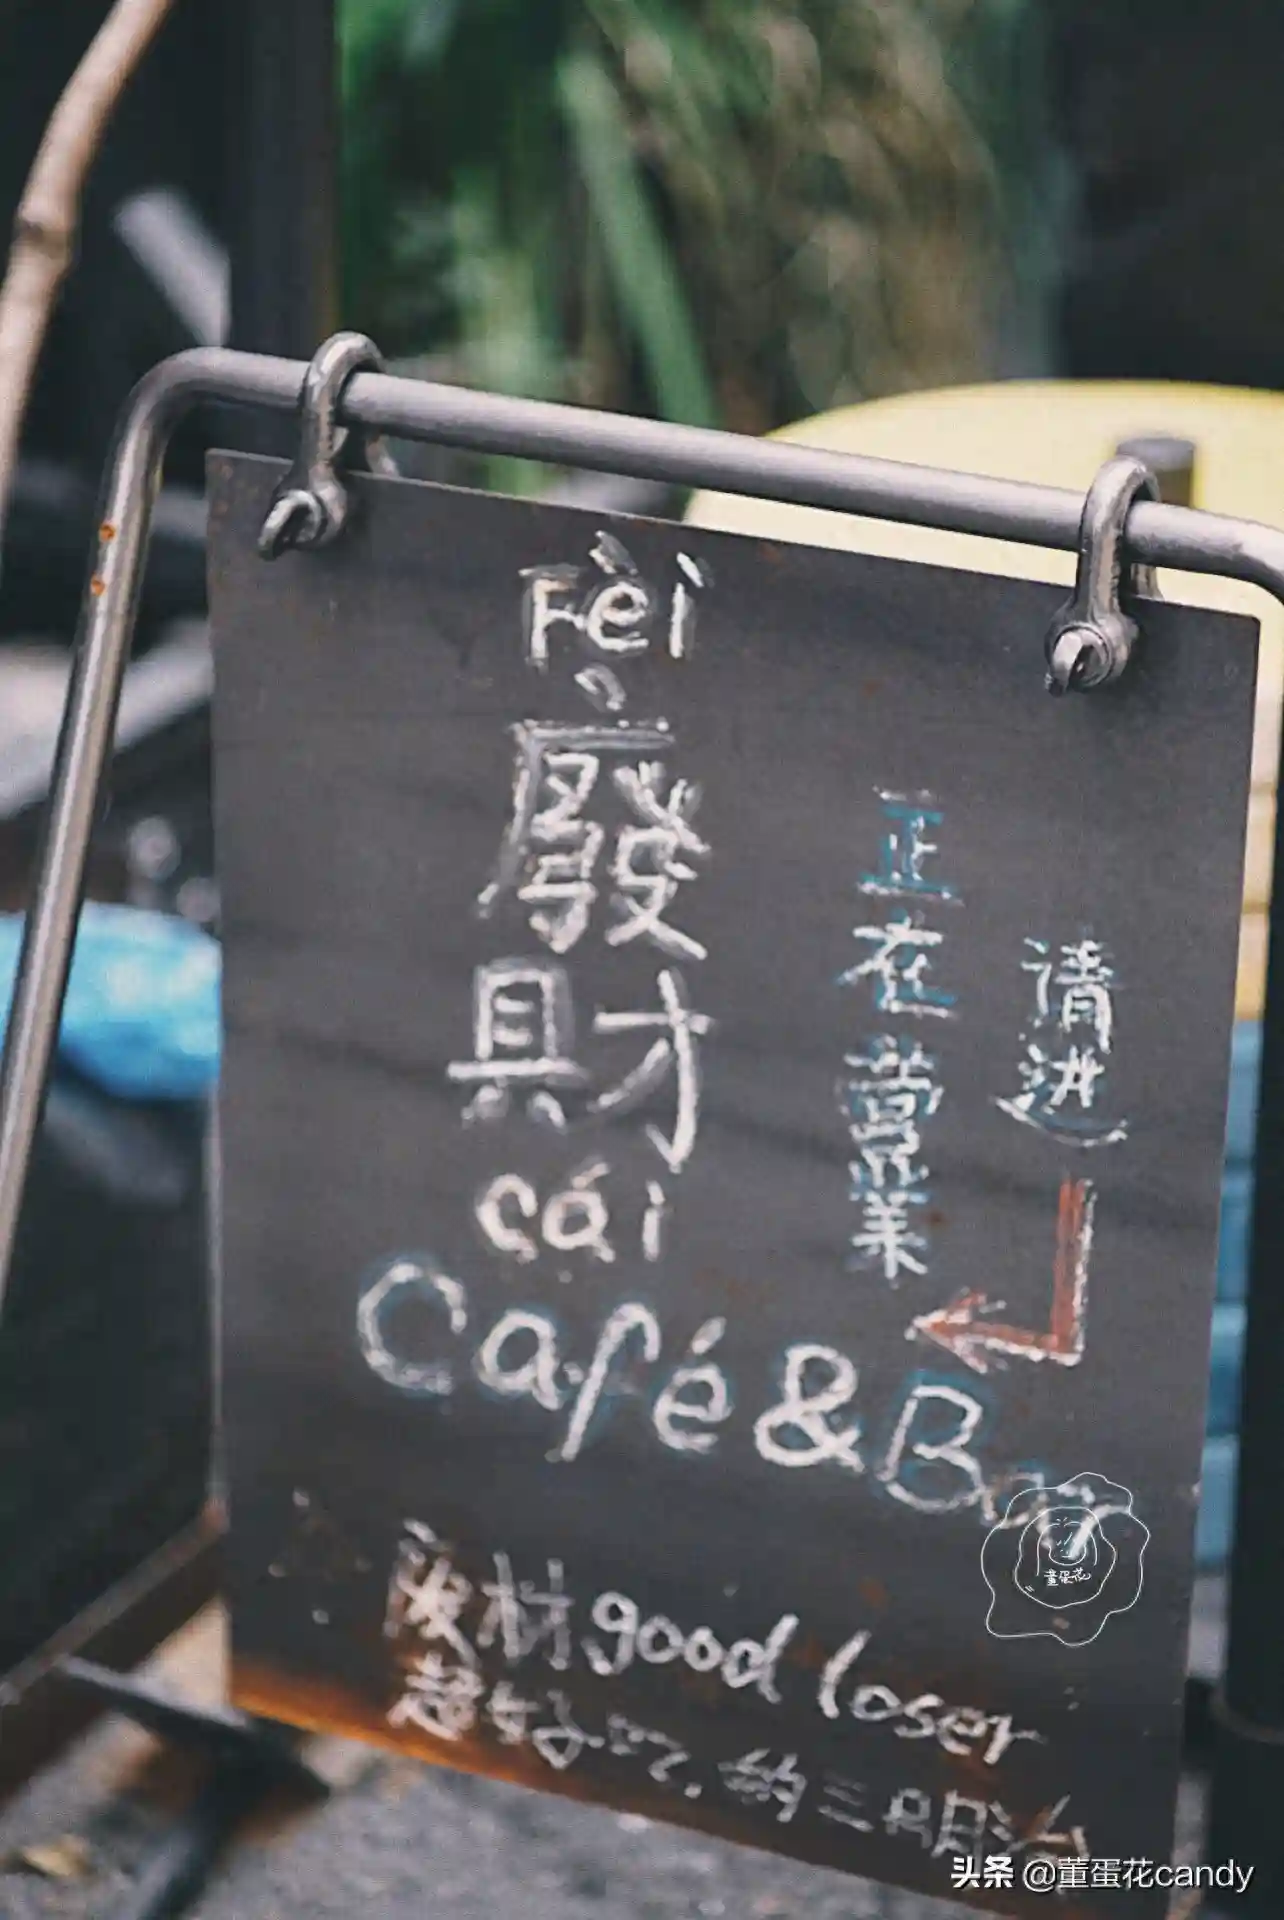 Fèi
廢
財
cái
正在營業
请进
Café & Bar
废材 good loser
超好吃的三明治
董蛋花
头条 @董蛋花candy